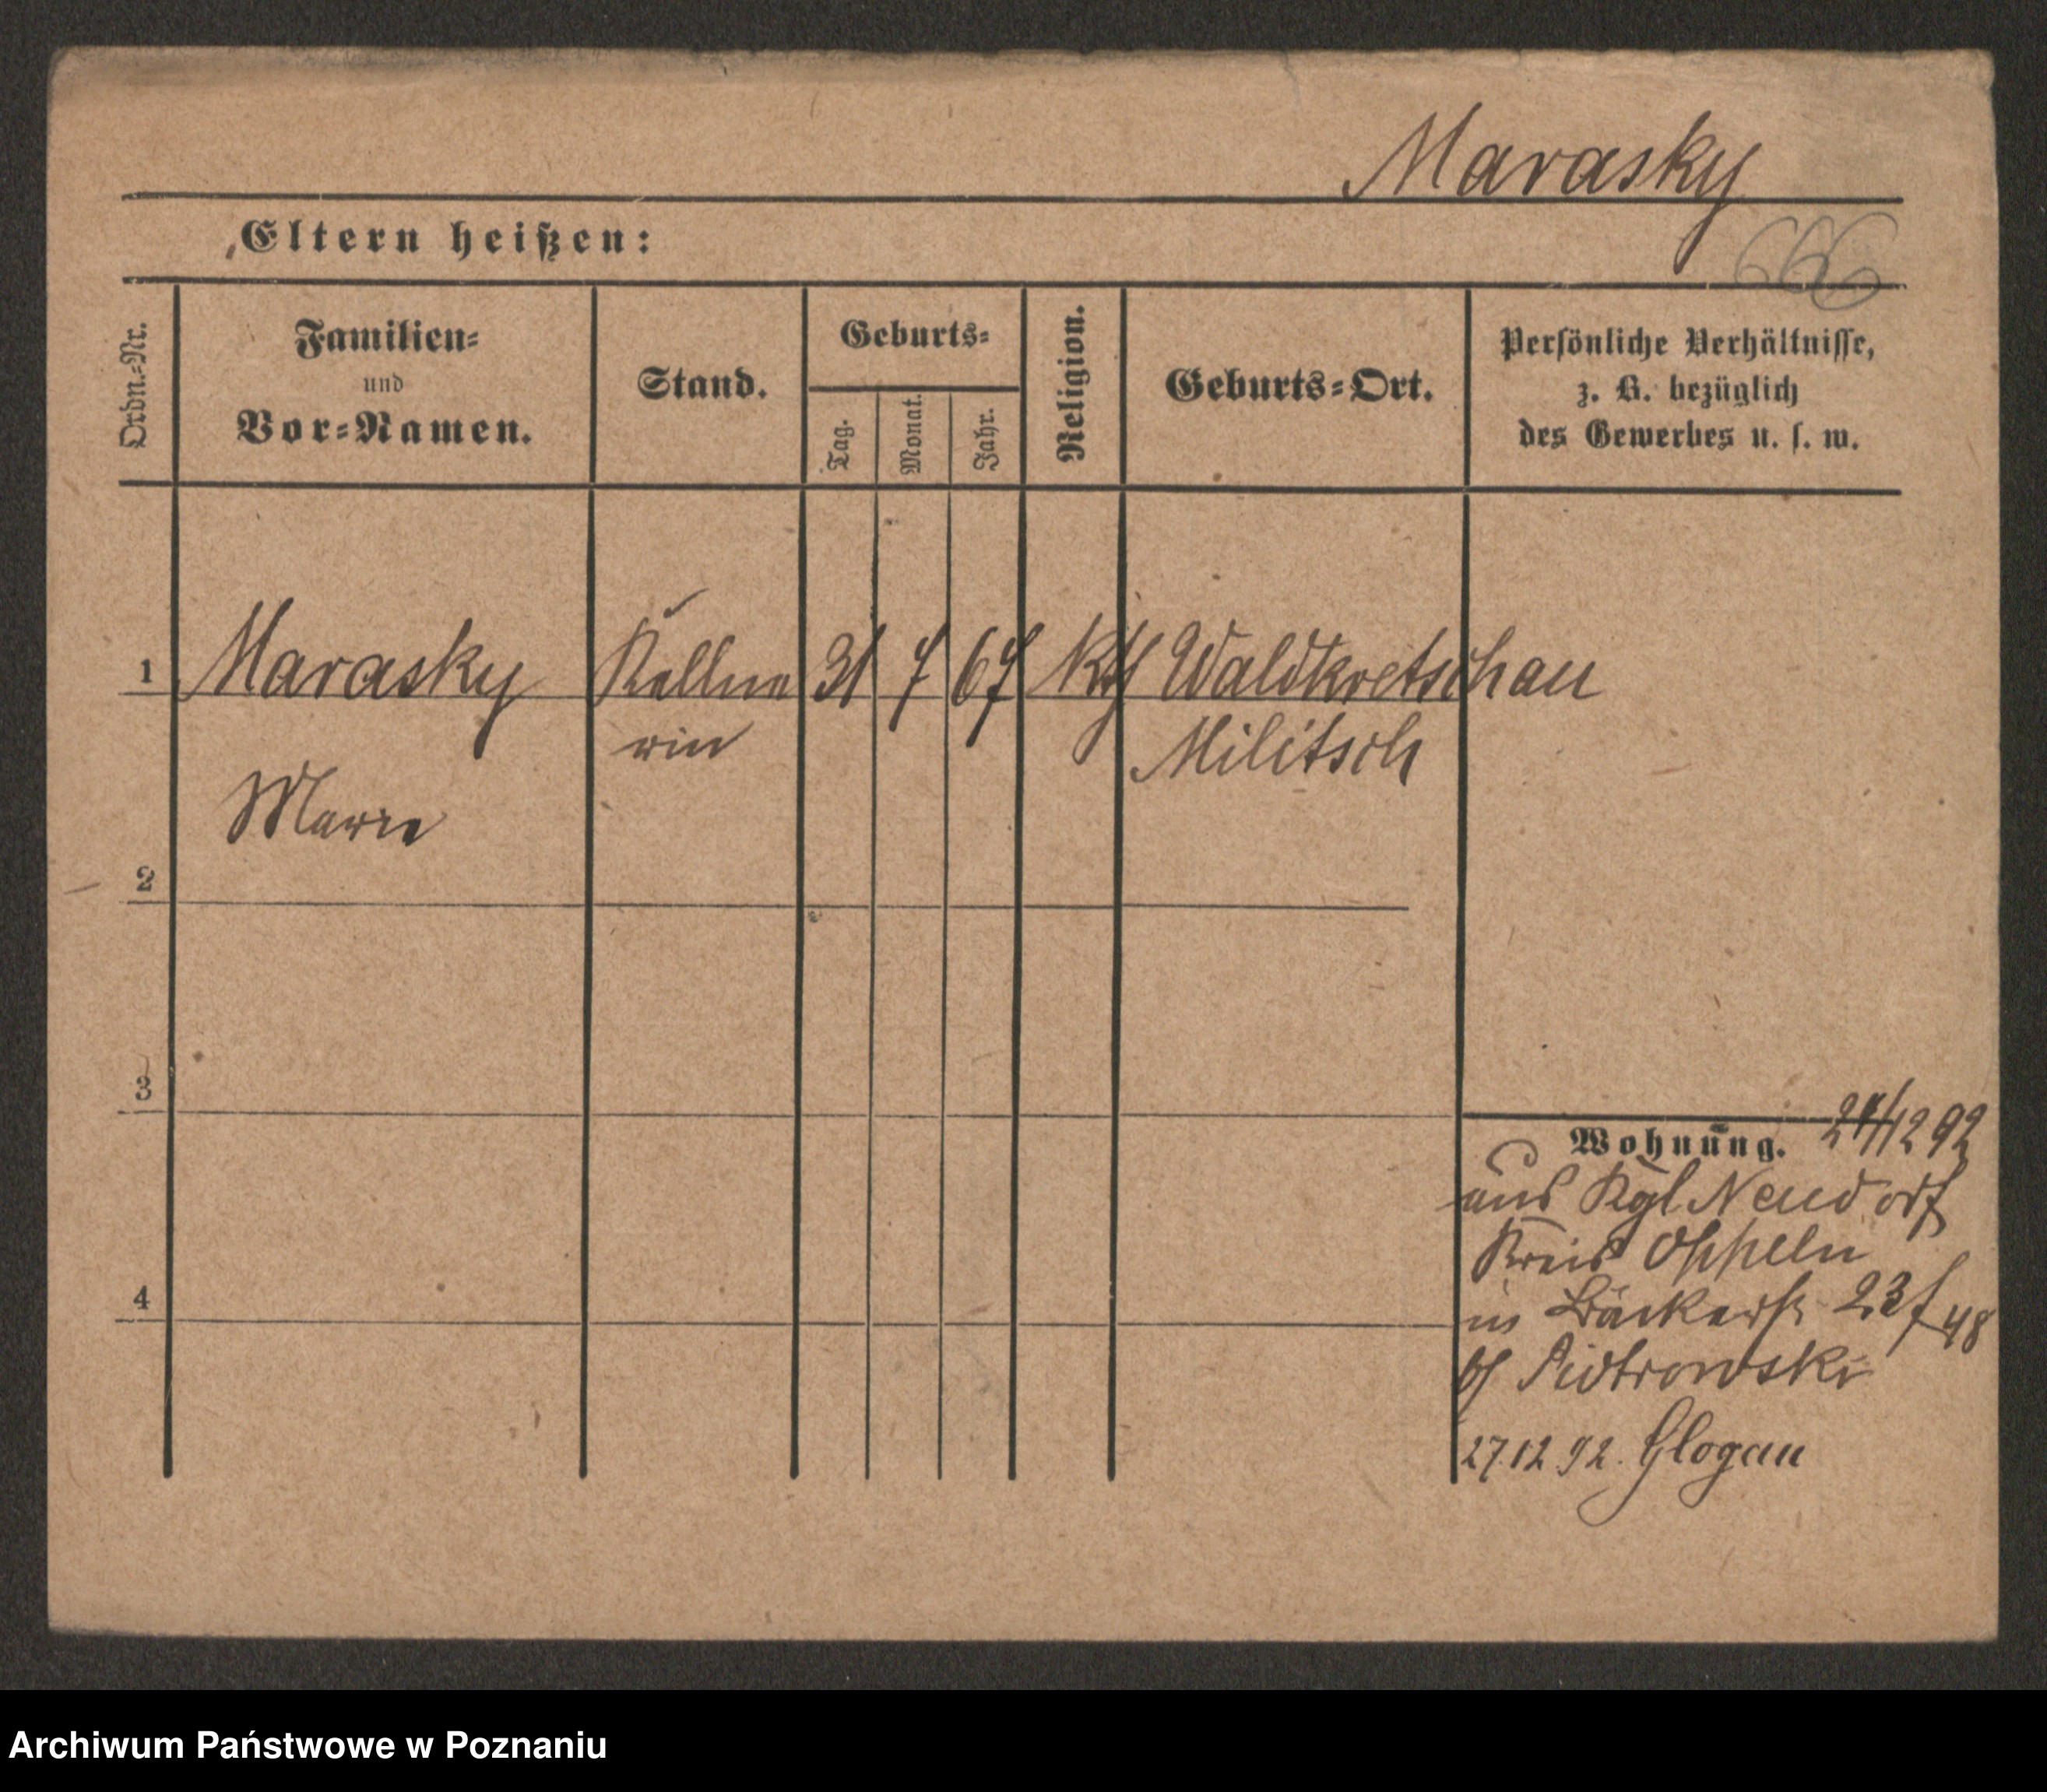 Marasky
666
Eltern heißen:
Ordn.=Nr.
Familien=
und
Vor=Namen.
Stand.
Geburts=
Tag.
Monat.
Jahr.
Religion.
Geburts=Ort.
Persönliche Verhältnisse,
z. B. bezüglich
des Gewerbes u. s. w.
1 Marasky Kellne 31 7 67 kth Waldkretschau
rin Militsch
Marie
2
3
4
Wohnung. /12 92
aus Kgl Neudorf
Kreis Oppeln
in Bäckerst 23 / 48
b/ Piotrowski
27.12 92. Glogau
Archiwum Państwowe w Poznaniu